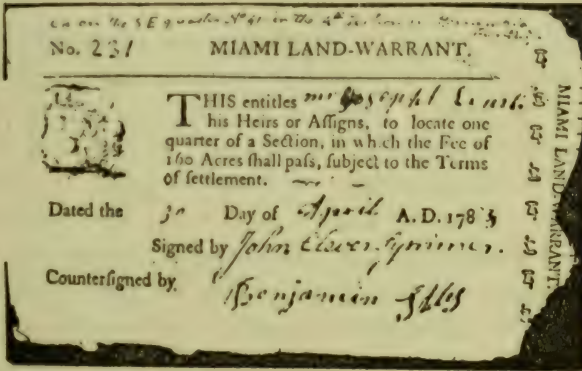 No. 231 MIAMI LAND-WARRANT.
THIS entitles mr Joseph
his Heirs or Aſſigns, to locate one
quarter of a Section, in which the Fee of
160 Acres ſhall paſs, ſubject to the Terms
of ſettlement.
Dated the 30 Day of April A. D. 178
Signed by John Cleves Symmes.
Counterſigned by
Benjamin
MIAMI LAND-WARRANT.